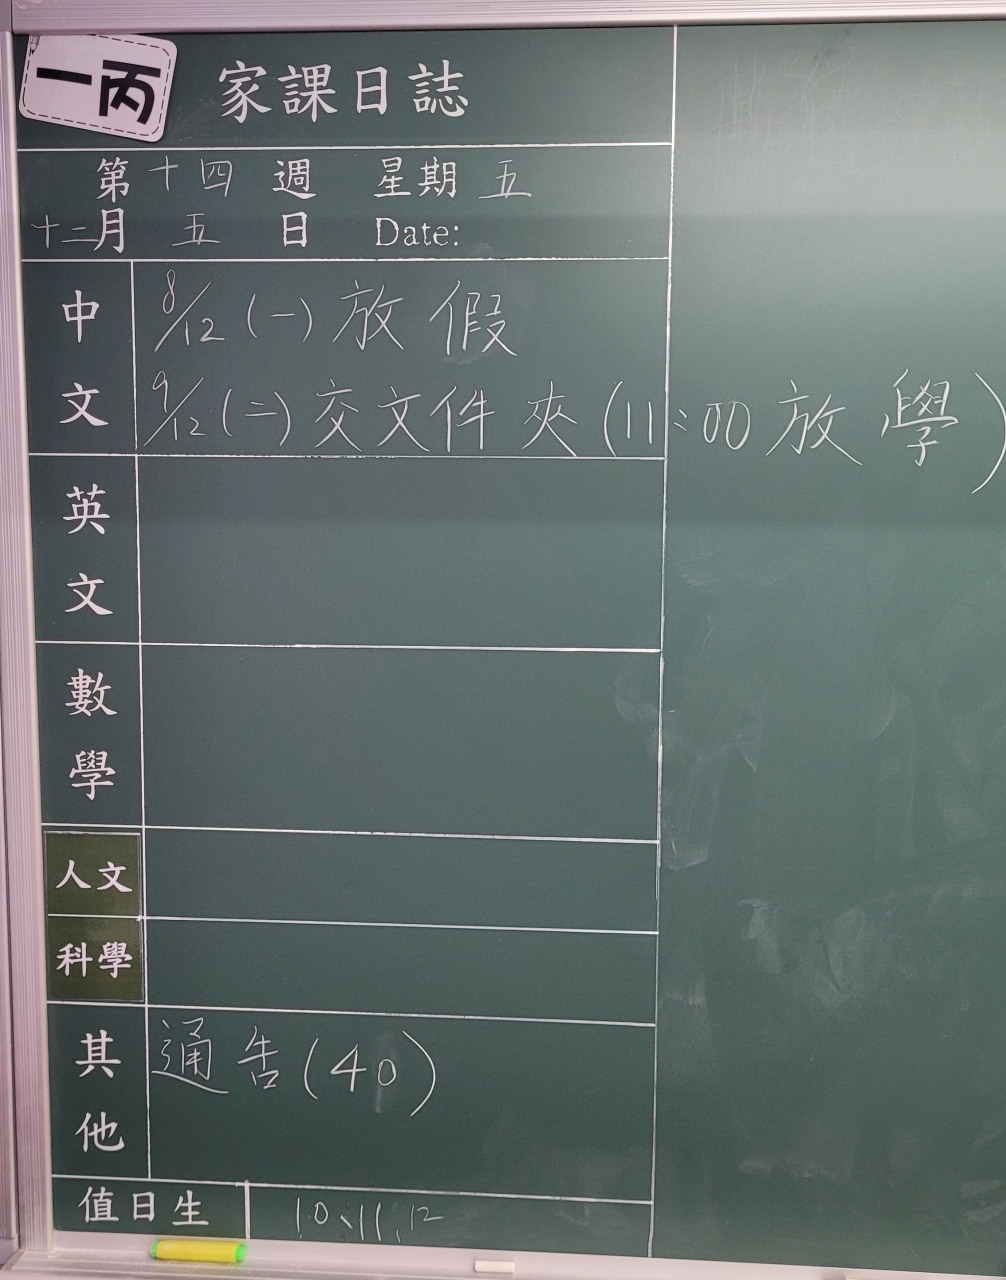 一丙 家課日誌
第十四週 星期五
十二月五日 Date:
中文 8/12(一)放假
9/12(二)交文件夾(11:00放學)
英文
數學
人文
科學
其他 通告(40)
值日生 10、11、12